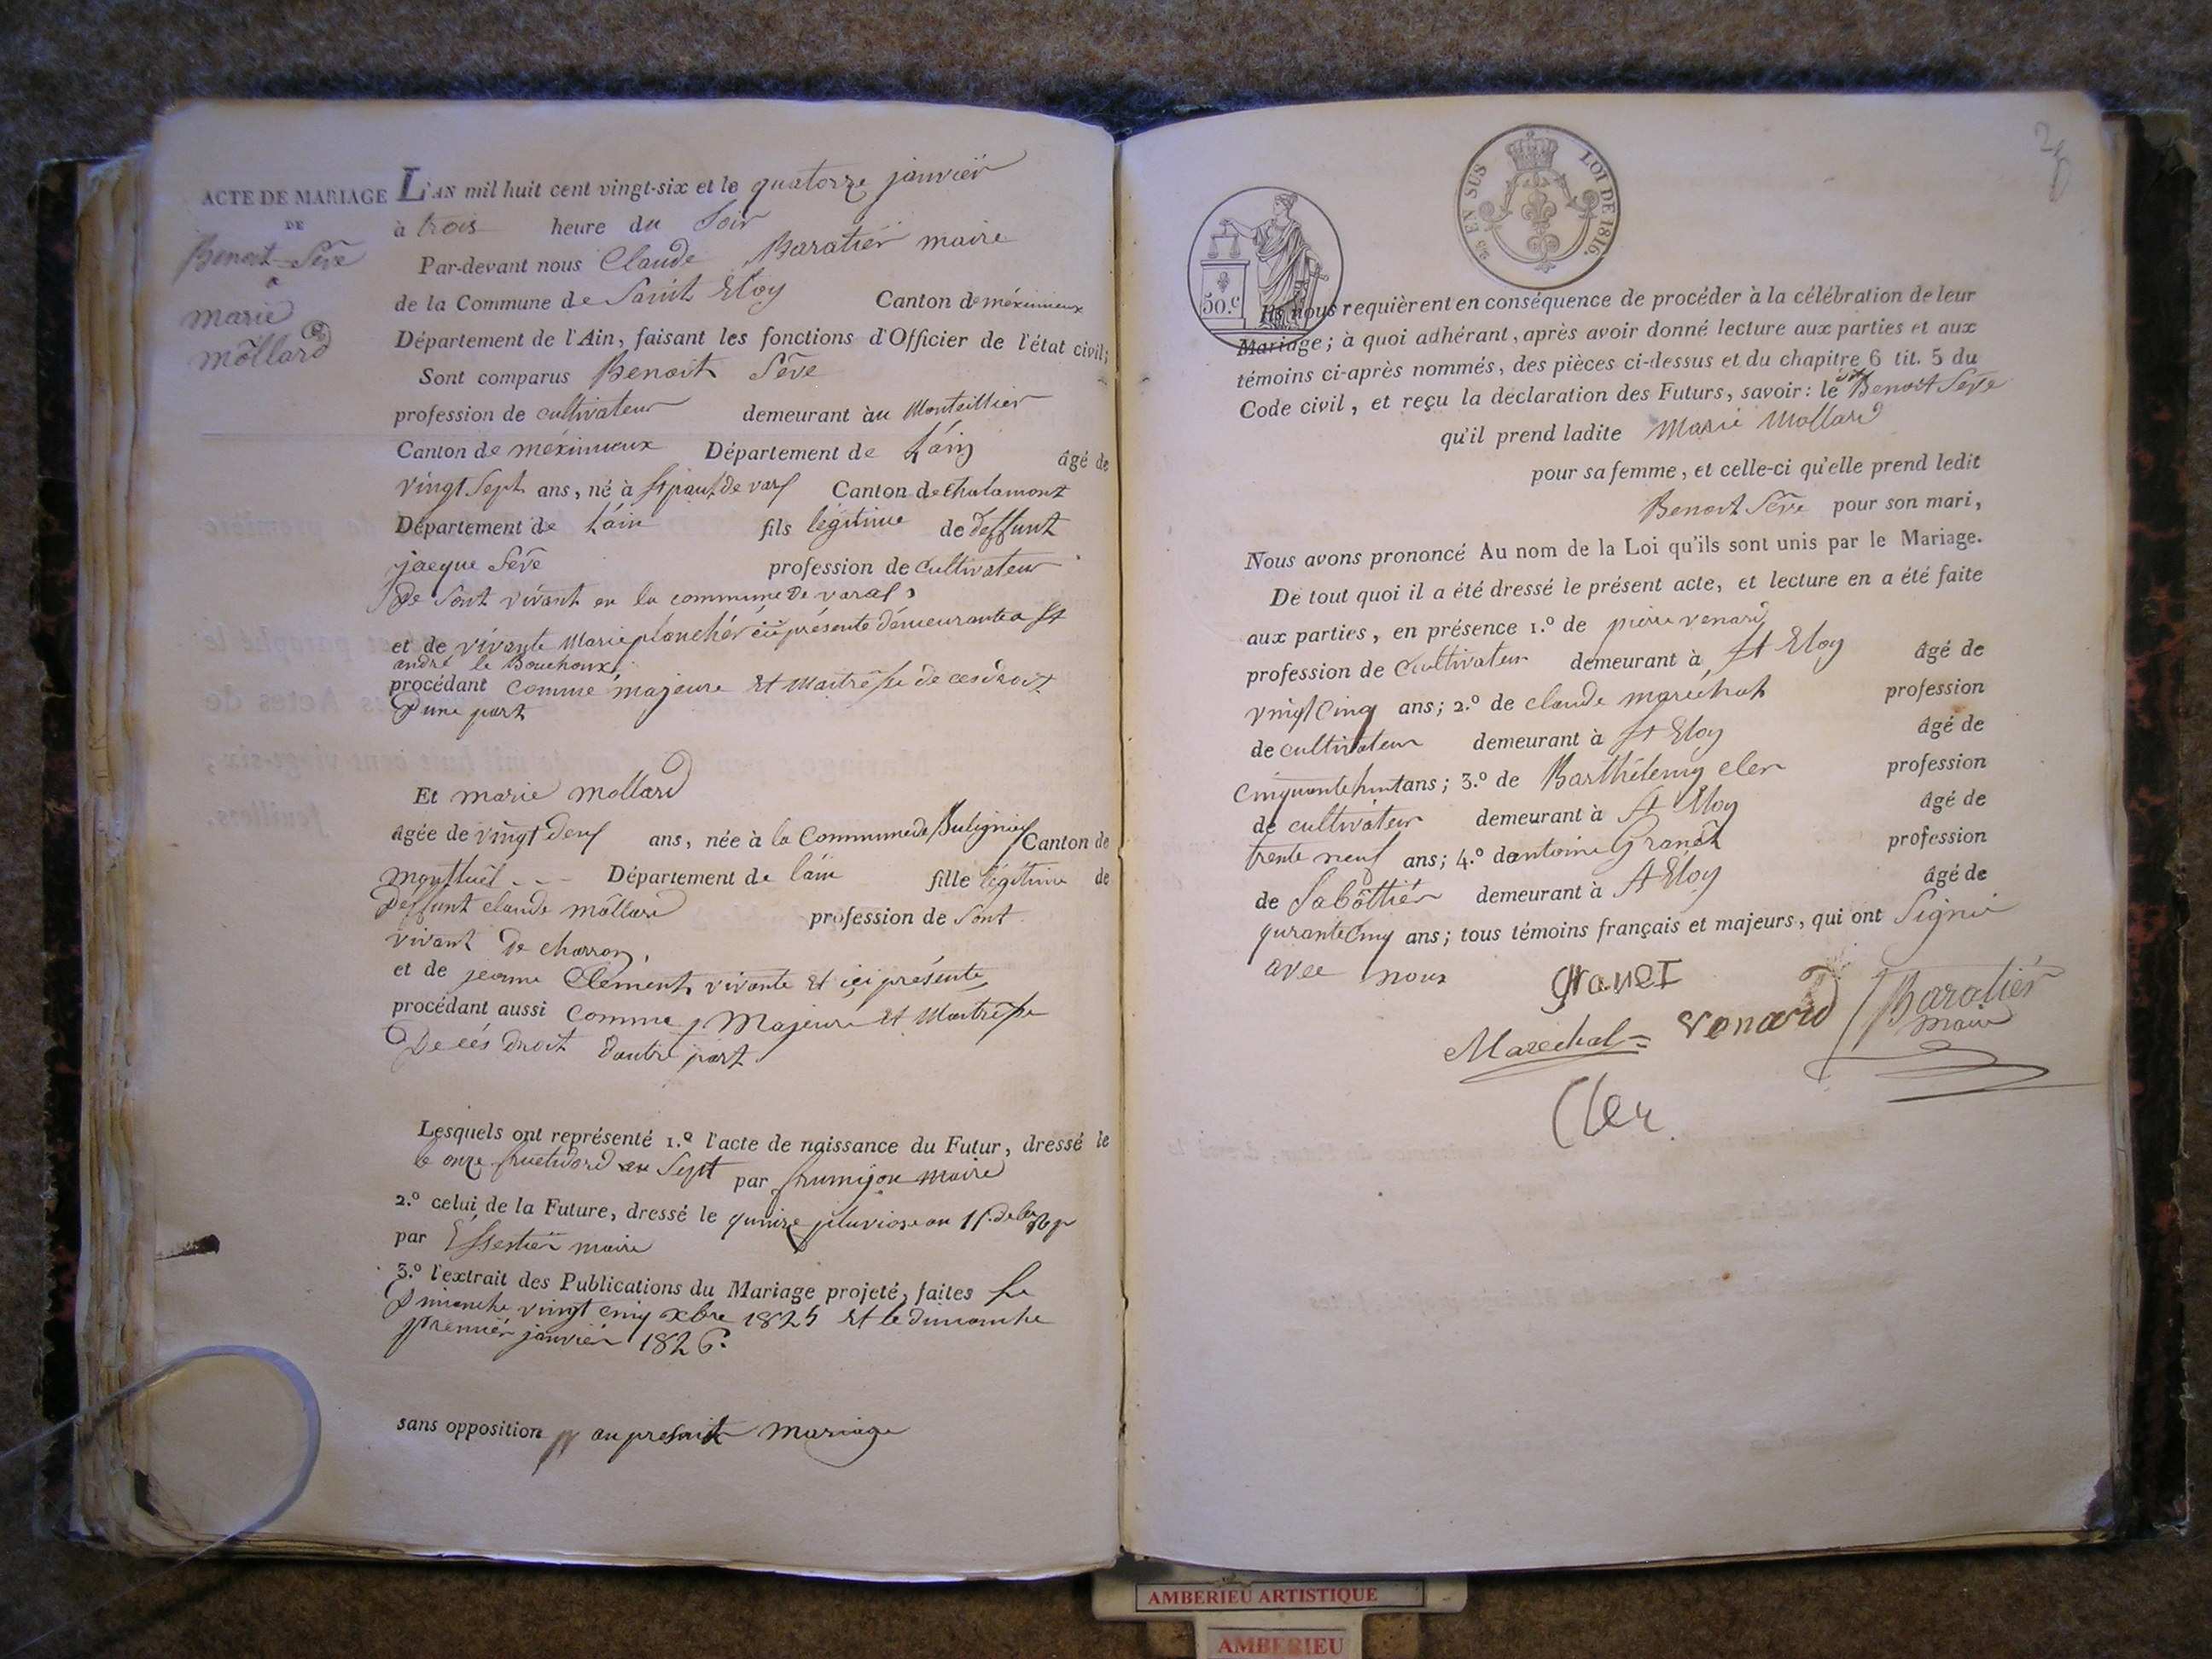 ACTE DE MARIAGE
DE
Benoit Sève
a
marie
môllard
L'AN mil huit cent vingt-six et le quatorze janvier
à trois heure du Soir
Par-devant nous Claude Baratier maire
de la Commune de Saint Eloy Canton de méximieux
Département de l'Ain, faisant les fonctions d'Officier de l'état civil;
Sont comparus Benoit Sève
profession de cultivateur demeurant àu Monteillier
Canton de méximieux Département de L'áin âgé de
vingt Sept ans, né à St paul de varf Canton de Chalamont
Département de L'áin fils légitime de deffunt
jacque Sève profession de cultivateur
De Sont vivant en la commune De varas,
et de vivante Marie planchér ici présente démeurante a St
andré le Bouchoux,
procédant comme majeure Et Maitresse de ces droit
D'une part
Et marie mollard
âgée de vingt deuf ans, née à la Commune de Buligneuf Canton de
Montluel Département de l'áin fille légitime de
Deffunt claude môllard profession de Sont
vivant De charron,
et de jeanne Clement vivante et ici présente,
procédant aussi comme Majeure Et Maitresse
De cés droit d'autre part.
Lesquels ont représenté 1.º l'acte de naissance du Futur, dressé le
le onze fructidord an Sept par frumijon maire
2.º celui de la Future, dressé le quinze pluviose an
par maire
3.º l'extrait des Publications du Mariage projeté, faites Le
Dimanche vingt cinq xbre 1825 Et le dimanche
premiér janviér 1826.
sans opposition au presant mariage
50.c
25 EN SUS
LOI DE 1816.
Ils nous requièrent en conséquence de procéder à la célébration de leur
Mariage; à quoi adhérant, après avoir donné lecture aux parties et aux
témoins ci-après nommés, des pièces ci-dessus et du chapitre 6 tit. 5 du
Code civil, et reçu la déclaration des Futurs, savoir: le dit Benoit Sève
qu'il prend ladite Marie Mollard
pour sa femme, et celle-ci qu'elle prend ledit
Benoit Sève pour son mari,
Nous avons prononcé Au nom de la Loi qu'ils sont unis par le Mariage.
De tout quoi il a été dressé le présent acte, et lecture en a été faite
aux parties, en présence 1.º de pierre venard
profession de Cultivateur demeurant à St Eloy âgé de
vingt Cinq ans; 2.º de claude maréchal profession
de cultivateur demeurant à St Eloy âgé de
Cinquante huit ans; 3.º de Barthélemy cler profession
de cultivateur demeurant à St Eloy âgé de
trente neuf ans; 4.º d'antoine Granét profession
de Sabôttiér demeurant à St Eloy âgé de
qurante Cinq ans; tous témoins français et majeurs, qui ont Signié
avec nous
GraneT
Marechal Venard Baratiér
maire
Cler
AMBERIEU ARTISTIQUE
AMBERIEU